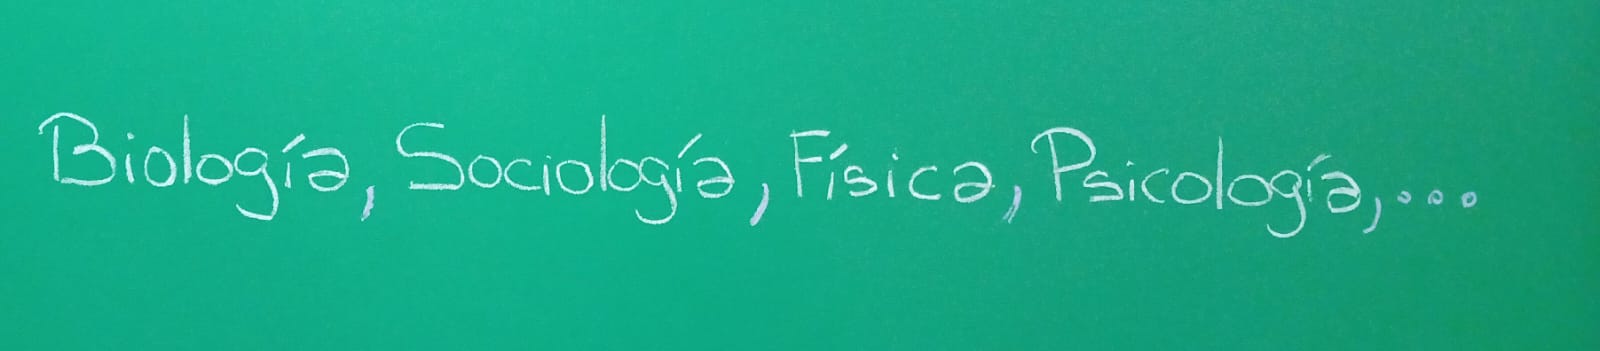 Biología, Sociología, Física, Psicología,...